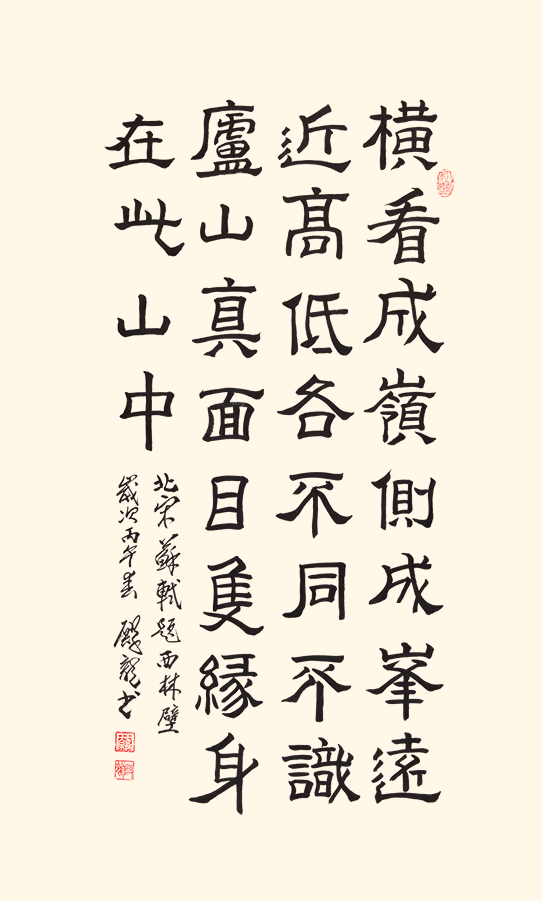 橫看成嶺側成峯遠
近髙低各不同不識
廬山真面目隻緣身
在此山中
北宋蘇軾題西林壁
歲次丙午春 龍书